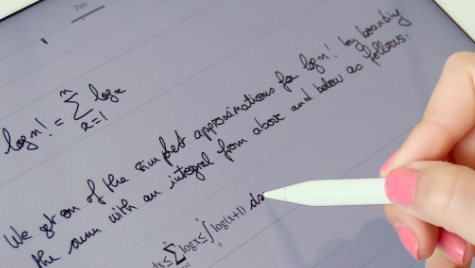 Pen
log n! = \sum_{x=1}^{n} log x
We get on of the simplest approximations for log n! by bounding
the sum with an integral from above and below as follows:
dx ≤ \sum log x ≤ \int log(x+1) dx